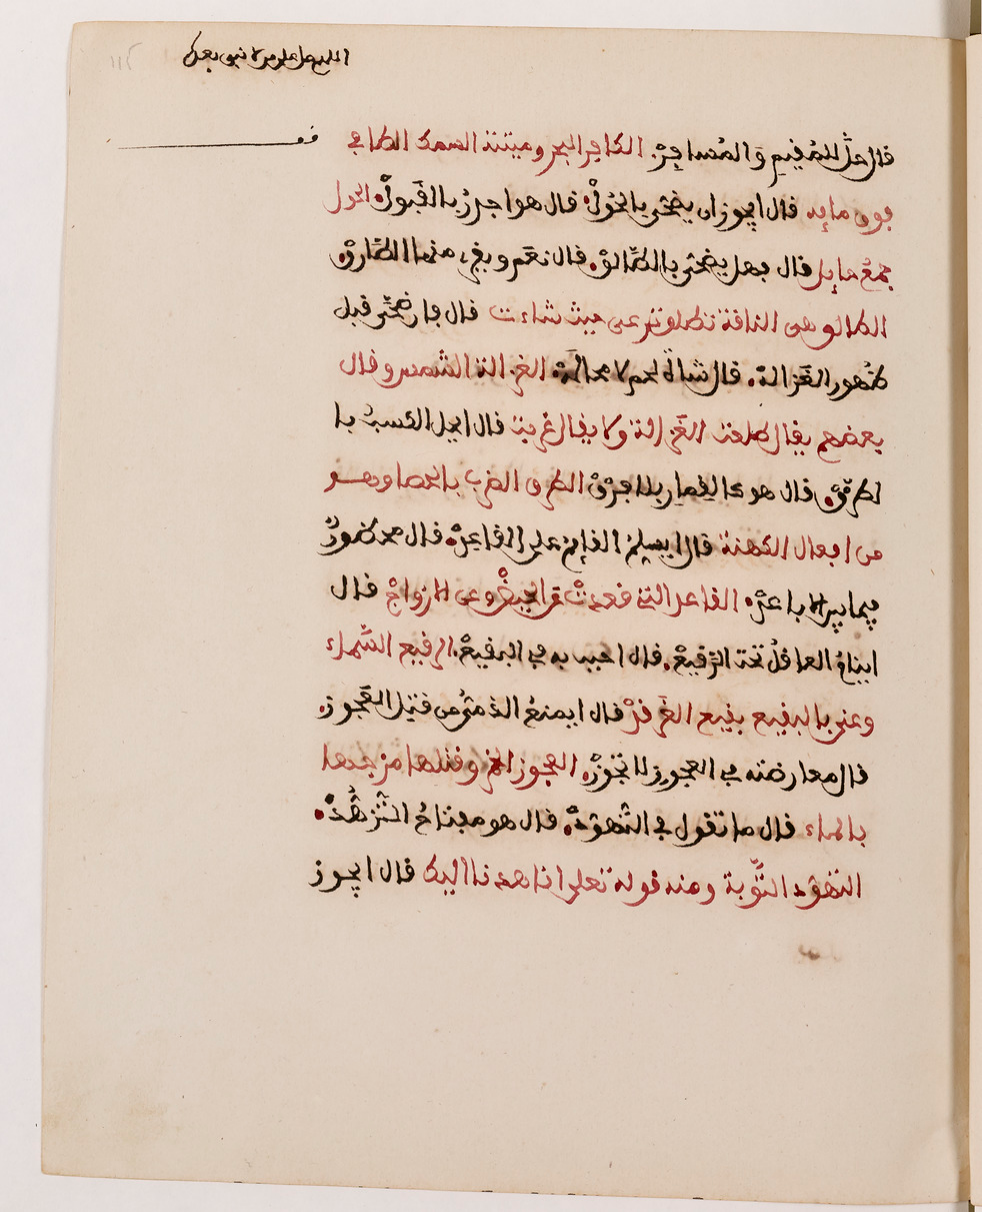 اللهم صل على من لا نبي بعده
قال حل للمقيم والمسافر. الكافر البحر وميتته السمك الطافي
فوق مايه قال ايجوز ان يضحى بالحول. قال هو اجدر بالقبول. الحول
جمع حايل قال فهل يضحى بالطالق. قال نعم ويقرى منها الطارق.
الطالق هي الناقة تطلق ترعى حيث شاءت قال فان ضحى قبل
ظهور الغزالة. قال شاة لحم لا محالة. الغزالة الشمس وقال
بعضهم يقال طلعت الغزالة ولا يقال غربت قال ايحل التكسب با
لطرق. قال هو كالقمار بلا فرق. الطرق الضرب بالحصا وهو
من افعال الكهنة قال ايسلم القايم على القاعد. قال محظور
فيما بين الاباعد. القاعد التي قعدت عن الحيض وعن الازواج قال
اينام العاقل تحت الرقيع. قال احبب به في البقيع. الرقيع السماء
وعنى بالبقيع بقيع الغرقد قال ايمنع الذمي من قتل العجوز.
قال معارضته في العجوز لا تجوز. العجوز الخمر وقتلها مزجها
بالماء قال ما تقول في التهود. قال هو مفتاح التزهد.
التهود التوبة ومنه قوله تعلى انا هدنا اليك قال ايجوز